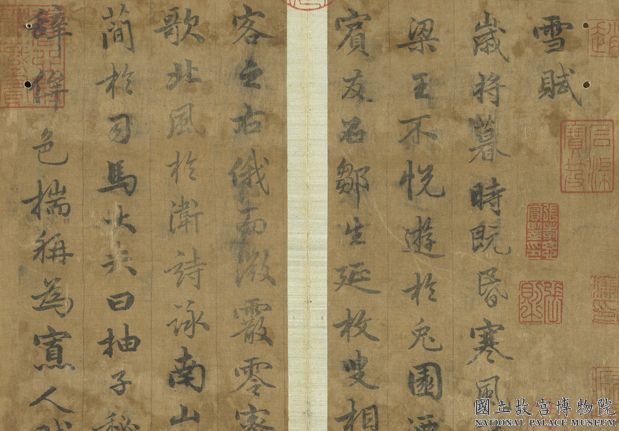 雪賦
歲將暮時既昏寒風
梁王不悅遊於兔園
賓友召鄒生延枚叟相
客之右俄而微霰零密
歌北風於衛詩詠南山
簡於司馬大夫曰抽子秘
辭侔色揣稱為寡人
國立故宮博物院
NATIONAL PALACE MUSEUM